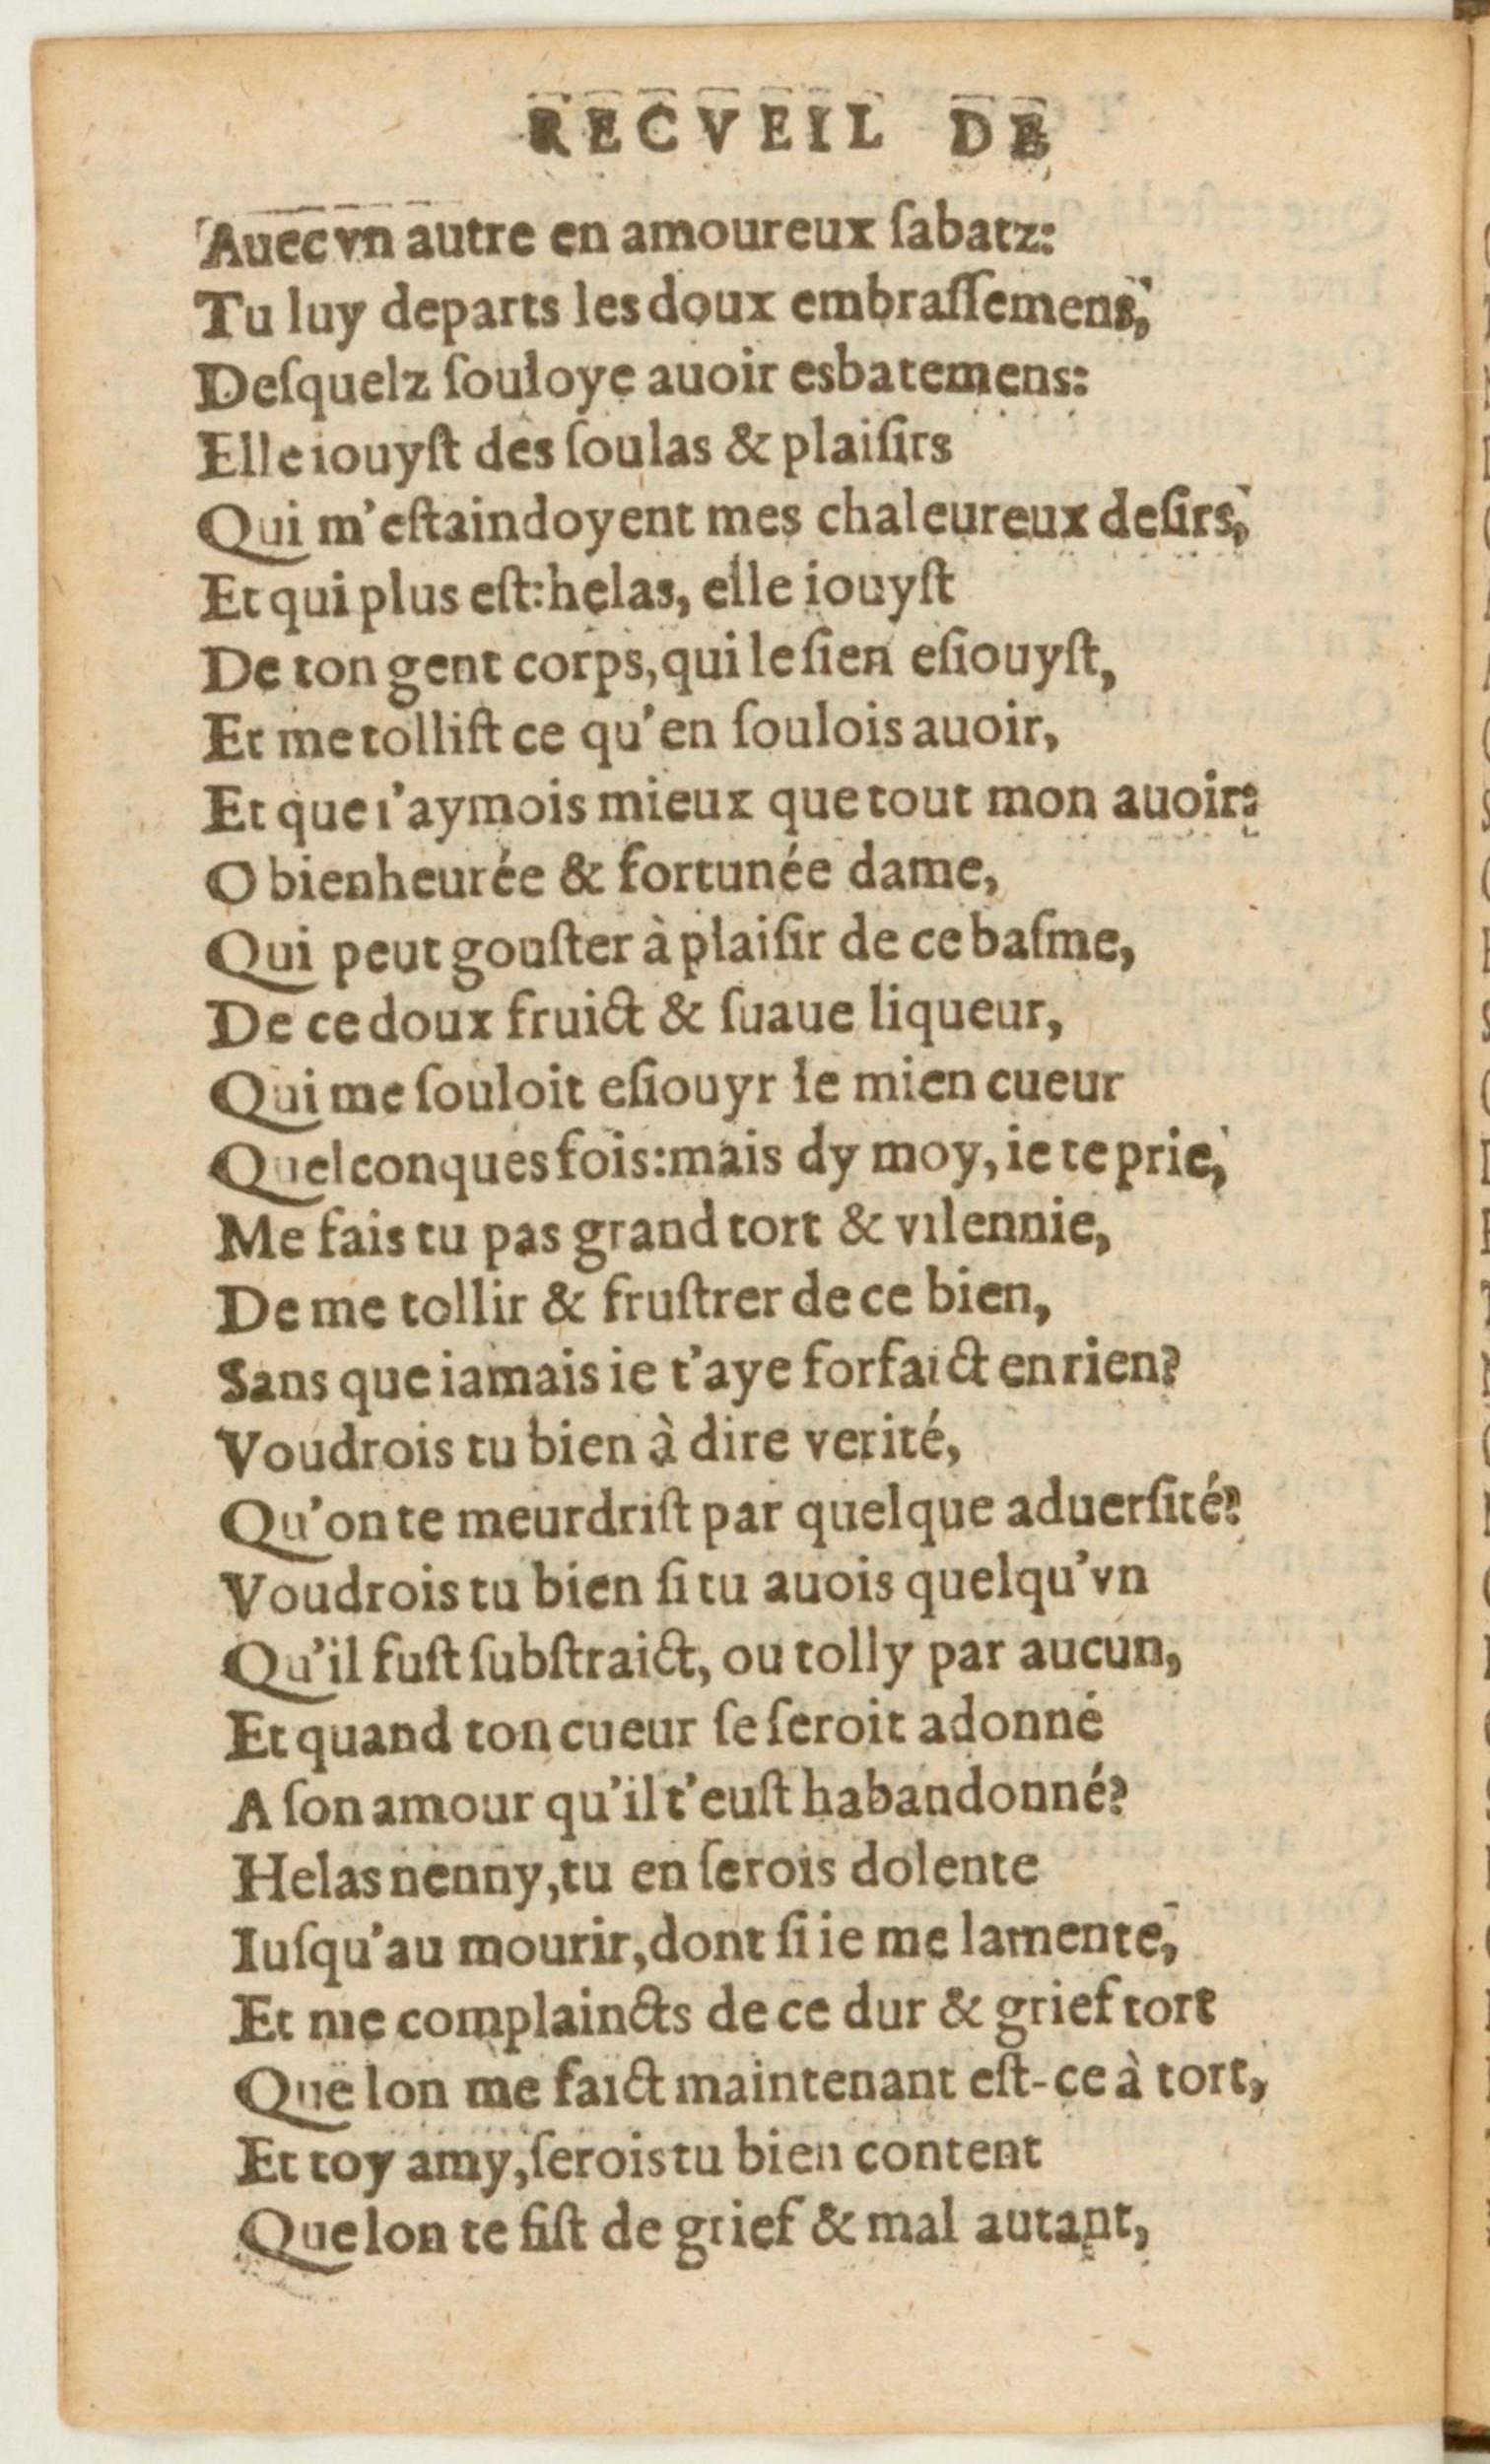 RECVEIL DE
Auec vn autre en amoureux ſabatz:
Tu luy departs les doux embraſſemens,
Deſquelz ſouloye auoir esbatemens:
Elle iouyſt des ſoulas & plaiſirs
Qui m'eſtaindoyent mes chaleureux deſirs,
Et qui plus eſt: helas, elle iouyſt
De ton gent corps, qui le ſien eſiouyſt,
Et me tolliſt ce qu'en ſoulois auoir,
Et que i'aymois mieux que tout mon auoir:
O bienheurée & fortunée dame,
Qui peut gouſter à plaiſir de ce baſme,
De ce doux fruict & ſuaue liqueur,
Qui me ſouloit eſiouyr le mien cueur
Quelconques fois: mais dy moy, ie te prie,
Me fais tu pas grand tort & vilennie,
De me tollir & fruſtrer de ce bien,
Sans que iamais ie t'aye forfaict en rien?
Voudrois tu bien à dire verité,
Qu'on te meurdriſt par quelque aduerſité?
Voudrois tu bien ſi tu auois quelqu'vn
Qu'il fuſt ſubſtraict, ou tolly par aucun,
Et quand ton cueur ſe ſeroit adonné
A ſon amour qu'il t'euſt habandonné?
Helas nenny, tu en ſerois dolente
Iuſqu'au mourir, dont ſi ie me lamente,
Et me complaincts de ce dur & grief tort
Que lon me faict maintenant eſt-ce à tort,
Et toy amy, ſerois tu bien content
Que lon te fiſt de grief & mal autant,